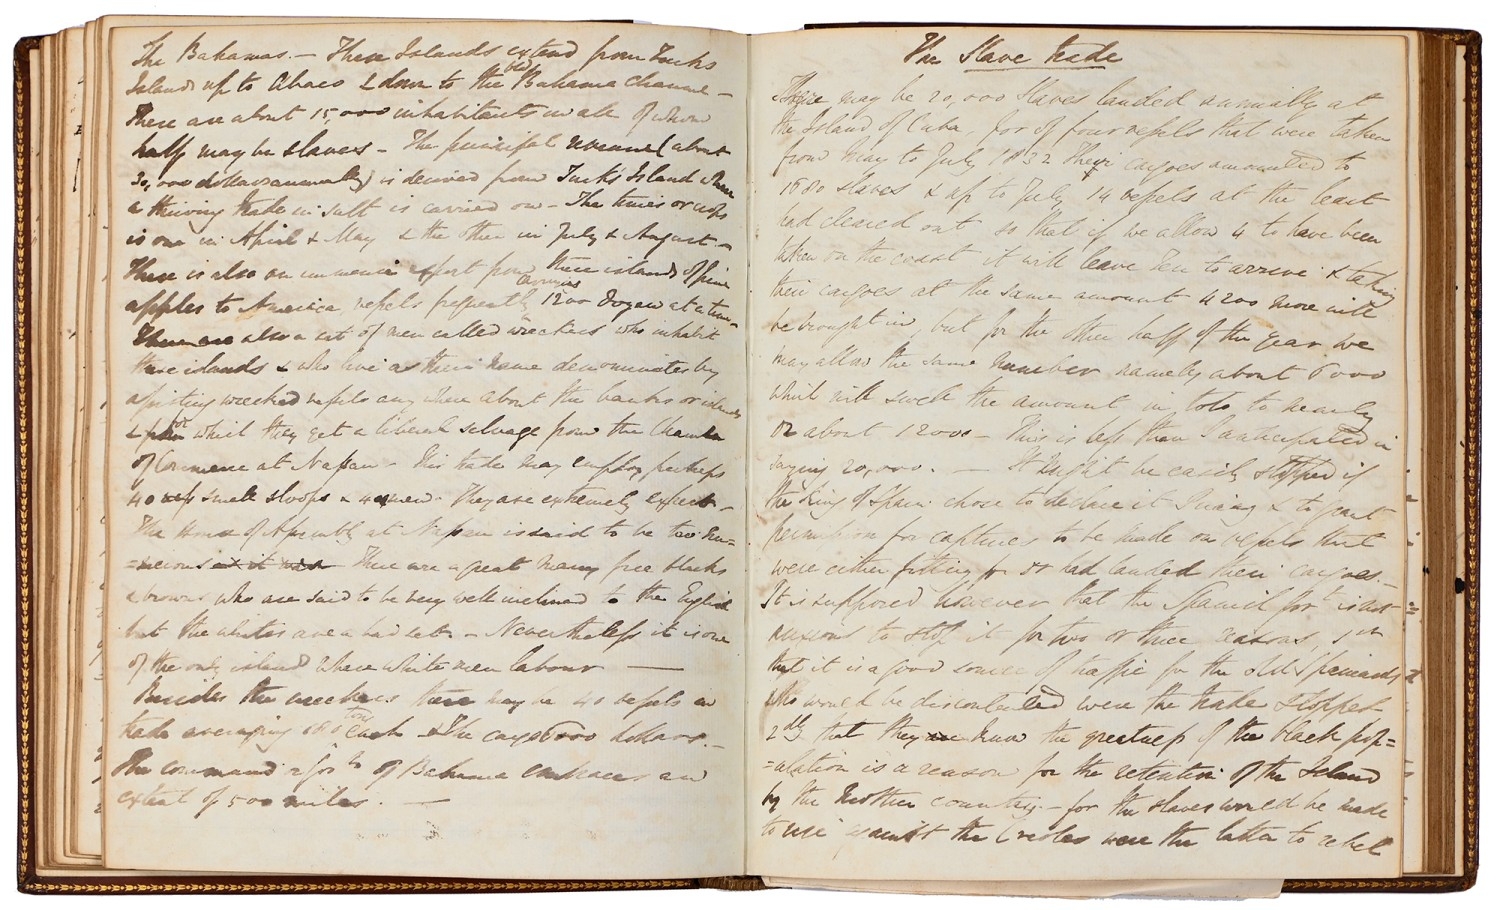 The Bahamas. — These Islands extend from Turks
Islands up to Abaco & down to the old Bahama Channel —
There are about 15,000 inhabitants in all of whom
half may be slaves — The principal revenue (about
30,000 dollars annually) is derived from Turk's Island where
a thriving trade in salt is carried on — The times or crops
is one in April & May & the other in July & August —
There is also an immense export from these islands of pine
apples to America vessels frequently carrying 1200 dozen at a time —
There are also a set of men called wreckers who inhabit
these islands & who live as their name denominates by
assisting wrecked vessels any where about the banks or islands
& for which they get a liberal salvage from the Chamber
of Commerce at Nassau — This trade may employ perhaps
40 small sloops & men. They are extremely expert —
The House of Assembly at Nassau is said to be too nu=
=merous There are a great many free blacks
& browns who are said to be very well inclined to the English
but the whites are a bad set — Nevertheless it is one
of the only islands where white men labour —
Besides the wreckers there may be 40 vessels in
trade averaging 180 tons each & The cargo 6000 dollars. —
The command of Bahama embraces an
extent of 500 miles. —
The Slave Trade
There may be 20,000 slaves landed annually at
the Island of Cuba, for of four vessels that were taken
from May to July 1832 their cargoes amounted to
1680 slaves & up to July 14 vessels at the least
had cleared out so that if we allow 4 to have been
taken on the coast it will leave ten to arrive & taking
their cargoes at the same amount 4200 more will
be brought in, but for the other half of the year we
may allow the same number namely about 6000
which will swell the amount in toto to nearly
or about 12000 — This is less than I anticipated in
saying 20,000. — It might be easily stopped if
the King of Spain chose to declare it Piracy & to grant
permission for captures to be made on vessels that
were either fitting for or had landed their cargoes. —
It is supposed however that the Spanish Govt is not
anxious to stop it for two or three reasons, 1st
that it is a good source of traffic for the old Spaniards
who would be discontented were the trade stopped
2dly that they know the greatness of the black pop=
=ulation is a reason for the retention of the Island
by the Mother country — for the slaves would be made
to use against the Creoles were the latter to rebel